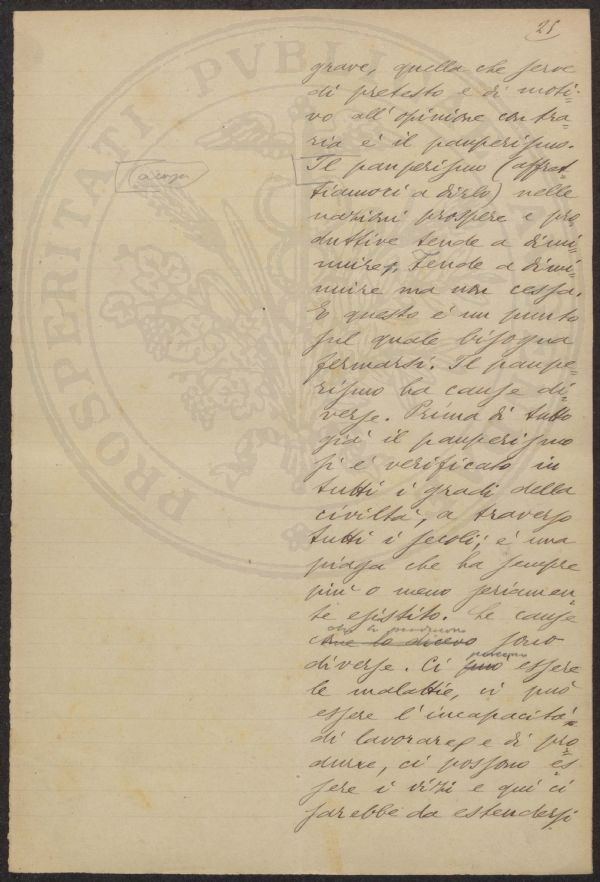 25
grave, quella che serve
di pretesto e di moti-
vo all'opinione contra-
ria è il pauperismo.
a capo
Il pauperismo (affret-
tiamoci a dirlo) nelle
nazioni prospere e pro
duttive tende a dimi=
nuire, tende a dimi=
nuire ma non cessa.
E questo è un punto
sul quale bisogna
fermarsi. Il paupe=
rismo ha cause di=
verse. Prima di tutto
già il pauperismo
si è verificato in
tutti i gradi della
civiltà, a traverso
tutti i secoli; è una
piaga che ha sempre
più o meno seriamen
te esistito. Le cause
che lo producono
che lo dicevo sono
possono
diverse. Ci può essere
le malattie, ci può
essere l'incapacità
di lavorare e di pro
durre, ci possono es
sere i vizi e qui ci
sarebbe da estendersi
PROSPERITATI PVBLI